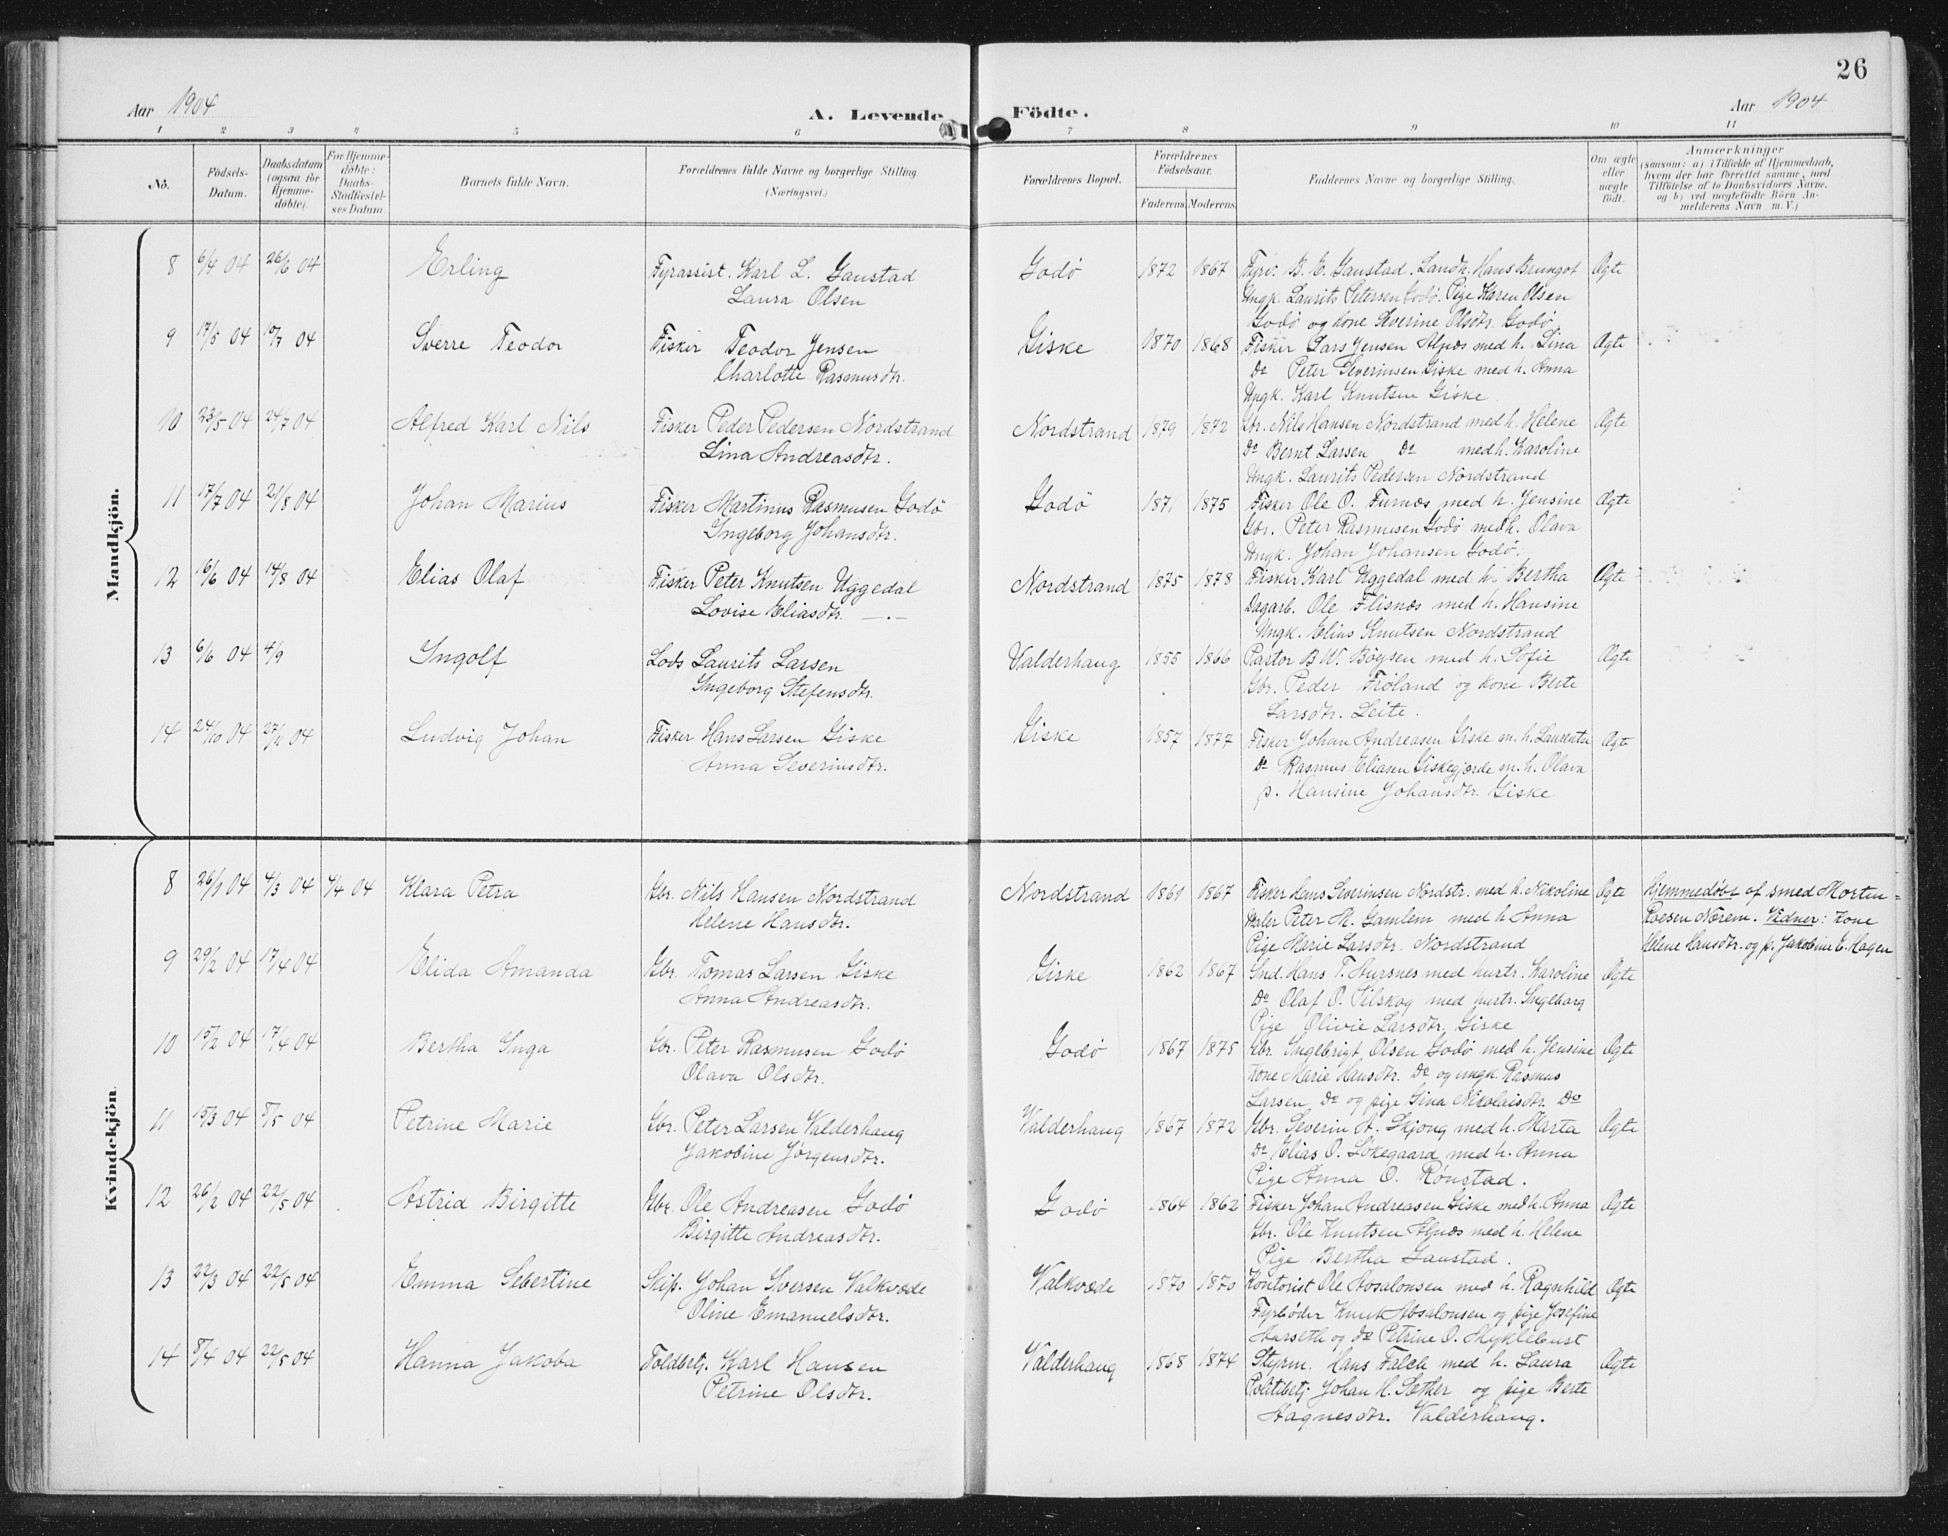 26
Aar 1904
A. Levende Födte.
Aar 1904
1 2 3 4 5 6 7 8 9 10 11
No. Födsels-Datum. Daabsdatum (ogsaa for Hjemme-döbte). For Hjemme-döbte: Daabs-Stadfæstel-ses Datum Barnets fulde Navn. Forældrenes fulde Navne og borgerlige Stilling. (Næringsvei.) Forældrenes Bopæl. Forældrenes Födselsaar. Faderens. Moderens. Faddernes Navne og borgerlige Stilling. Om ægte eller uægte födt. Anmærkninger (saasom: a) i Tilfælde af Hjemmedaab, hvem der har forrettet samme, med Tilföielse af to Daabsvidners Navne, og b) ved uægtefödte Börn An-melderens Navn m. V.)
Mandkjön.
8 6/4 04 26/6 04 Erling Fyrassist. Karl L. Gaustad Godø 1872 1867 Fyrv. B. E. Gaustad. Landh. Hans Brungot Ægte
Laura Olsen Ungk. Laurits Petersen Godø. Pige Karen Olsen
Godø og kone Severine Olsdtr. Godø
9 17/5 04 10/7 04 Sverre Teodor Fisker Teodor Jensen Giske 1870 1868 Fisker Lars Jensen Alnæs med h. Lina Ægte
Charlotte Rasmusdtr. Do Peter Severinsen Giske med h. Anna
Ungk. Karl Knutsen Giske.
10 23/5 04 24/7 04 Alfred Karl Nils Fisker Peder Pedersen Nordstrand Nordstrand 1879 1872 Gbr. Nils Hansen Nordstrand med h. Helene Ægte
Lina Andreasdtr. Do Bernt Larsen Do med h. Karoline
Ungk. Laurits Pedersen Nordstrand
11 17/7 04 21/8 04 Johan Marius Fisker Martinus Rasmusen Godø Godø 1871 1875 Fisker Ole O. Furnæs med h. Jensine Ægte
Ingeborg Johansdtr. Gbr. Peter Rasmusen Godø med h. Olava
Ungk. Johan Johansen Godø.
12 16/6 04 14/8 04 Elias Olaf Fisker Peter Knutsen Uggedal Nordstrand 1875 1878 Fisker Karl Uggedal med h. Bertha Ægte
Lovise Eliasdtr. —.— Dagarb. Ole Flisnæs med h. Hansine
Ungk. Elias Knutsen Nordstrand
13 6/6 04 4/9 Ingolf Lods Laurits Larsen Valderhaug 1855 1866 Pastor B. W. Bøysen med h. Sofie Ægte
Ingeborg Stefensdtr. Gbr. Peder Frøland og kone Berte
Larsdtr. Leite.
14 24/10 04 27/11 04 Ludvig Johan Fisker Hans Larsen Giske Giske 1857 1877 Fisker Johan Andreasen Giske m. h. Laurentse Ægte
Anna Severinsdtr. Do Rasmus Eliasen Giskegjerde m. h. Olava
p. Hansine Johansdtr. Giske
Kvindekjön
8 26/1 04 4/3 04 4/4 04 Klara Petra Gbr. Nils Hansen Nordstrand Nordstrand 1861 1867 Fisker Hans Severinsen Nordstr. med h. Nikoline Ægte Hjemmedøbt af smed Morten
Helene Hansdtr. Maler Peter M. Gamlem med h. Anna Roesen Nærem. Vidner: kone
Pige Marie Larsdtr. Nordstrand Helene Hansdtr. og p. Jakobine E. Hagen
9 29/2 04 17/4 04 Elida Amanda Gbr. Tomas Larsen Giske Giske 1862 1867 Gmd. Hans T. Aursnes med hustr. Karoline Ægte
Anna Andreasdtr. Do Olaf O. Pilskog med hustr. Ingeborg
Pige Olivie Larsdtr. Giske
10 15/2 04 17/4 04 Bertha Inga Gbr. Peter Rasmusen Godø Godø 1867 1875 Gbr. Ingebrigt Olsen Godø med h. Jensine Ægte
Olava Olsdtr. Kone Marie Hansdtr. Do og ungk. Rasmus
Larsen Do og pige Gina Nikolaisdtr. Do
11 15/3 04 8/5 04 Petrine Marie Gbr. Peter Larsen Valderhaug Valderhaug 1867 1872 Gbr. Severin A. Skjong med h. Marta Ægte
Jakobine Jørgensdtr. Do Elias O. Løkegaard med h. Anna
Pige Anna O. Rønstad.
12 26/2 04 22/5 04 Astrid Birgitte Gbr. Ole Andreasen Godø Godø 1864 1862 Fisker Johan Andreasen Giske med h. Anna Ægte
Birgitte Andreasdtr. Gbr. Ole Knutsen Alnæs med h. Helene
Pige Bertha Gaustad.
13 22/3 04 22/5 04 Emma Sebertine Skip. Johan Iversen Valkvæde Valkvæde 1870 1870 Kontorist Ole Absalonsen med h. Ragnhild Ægte
Oline Emanuelsdtr. Fyrbøder Knut Absalonsen og pige Josefine
Aarseth og do Petrine O. Myklebust
14 8/4 04 22/5 04 Hanna Jakoba Toldbetj. Karl Hansen Valderhaug 1868 1874 Styrm. Hans Falch med h. Laura Ægte
Petrine Olsdtr. Politibetj. Johan H. Sætker og pige Berte
Aagnesdtr. Valderhaug.